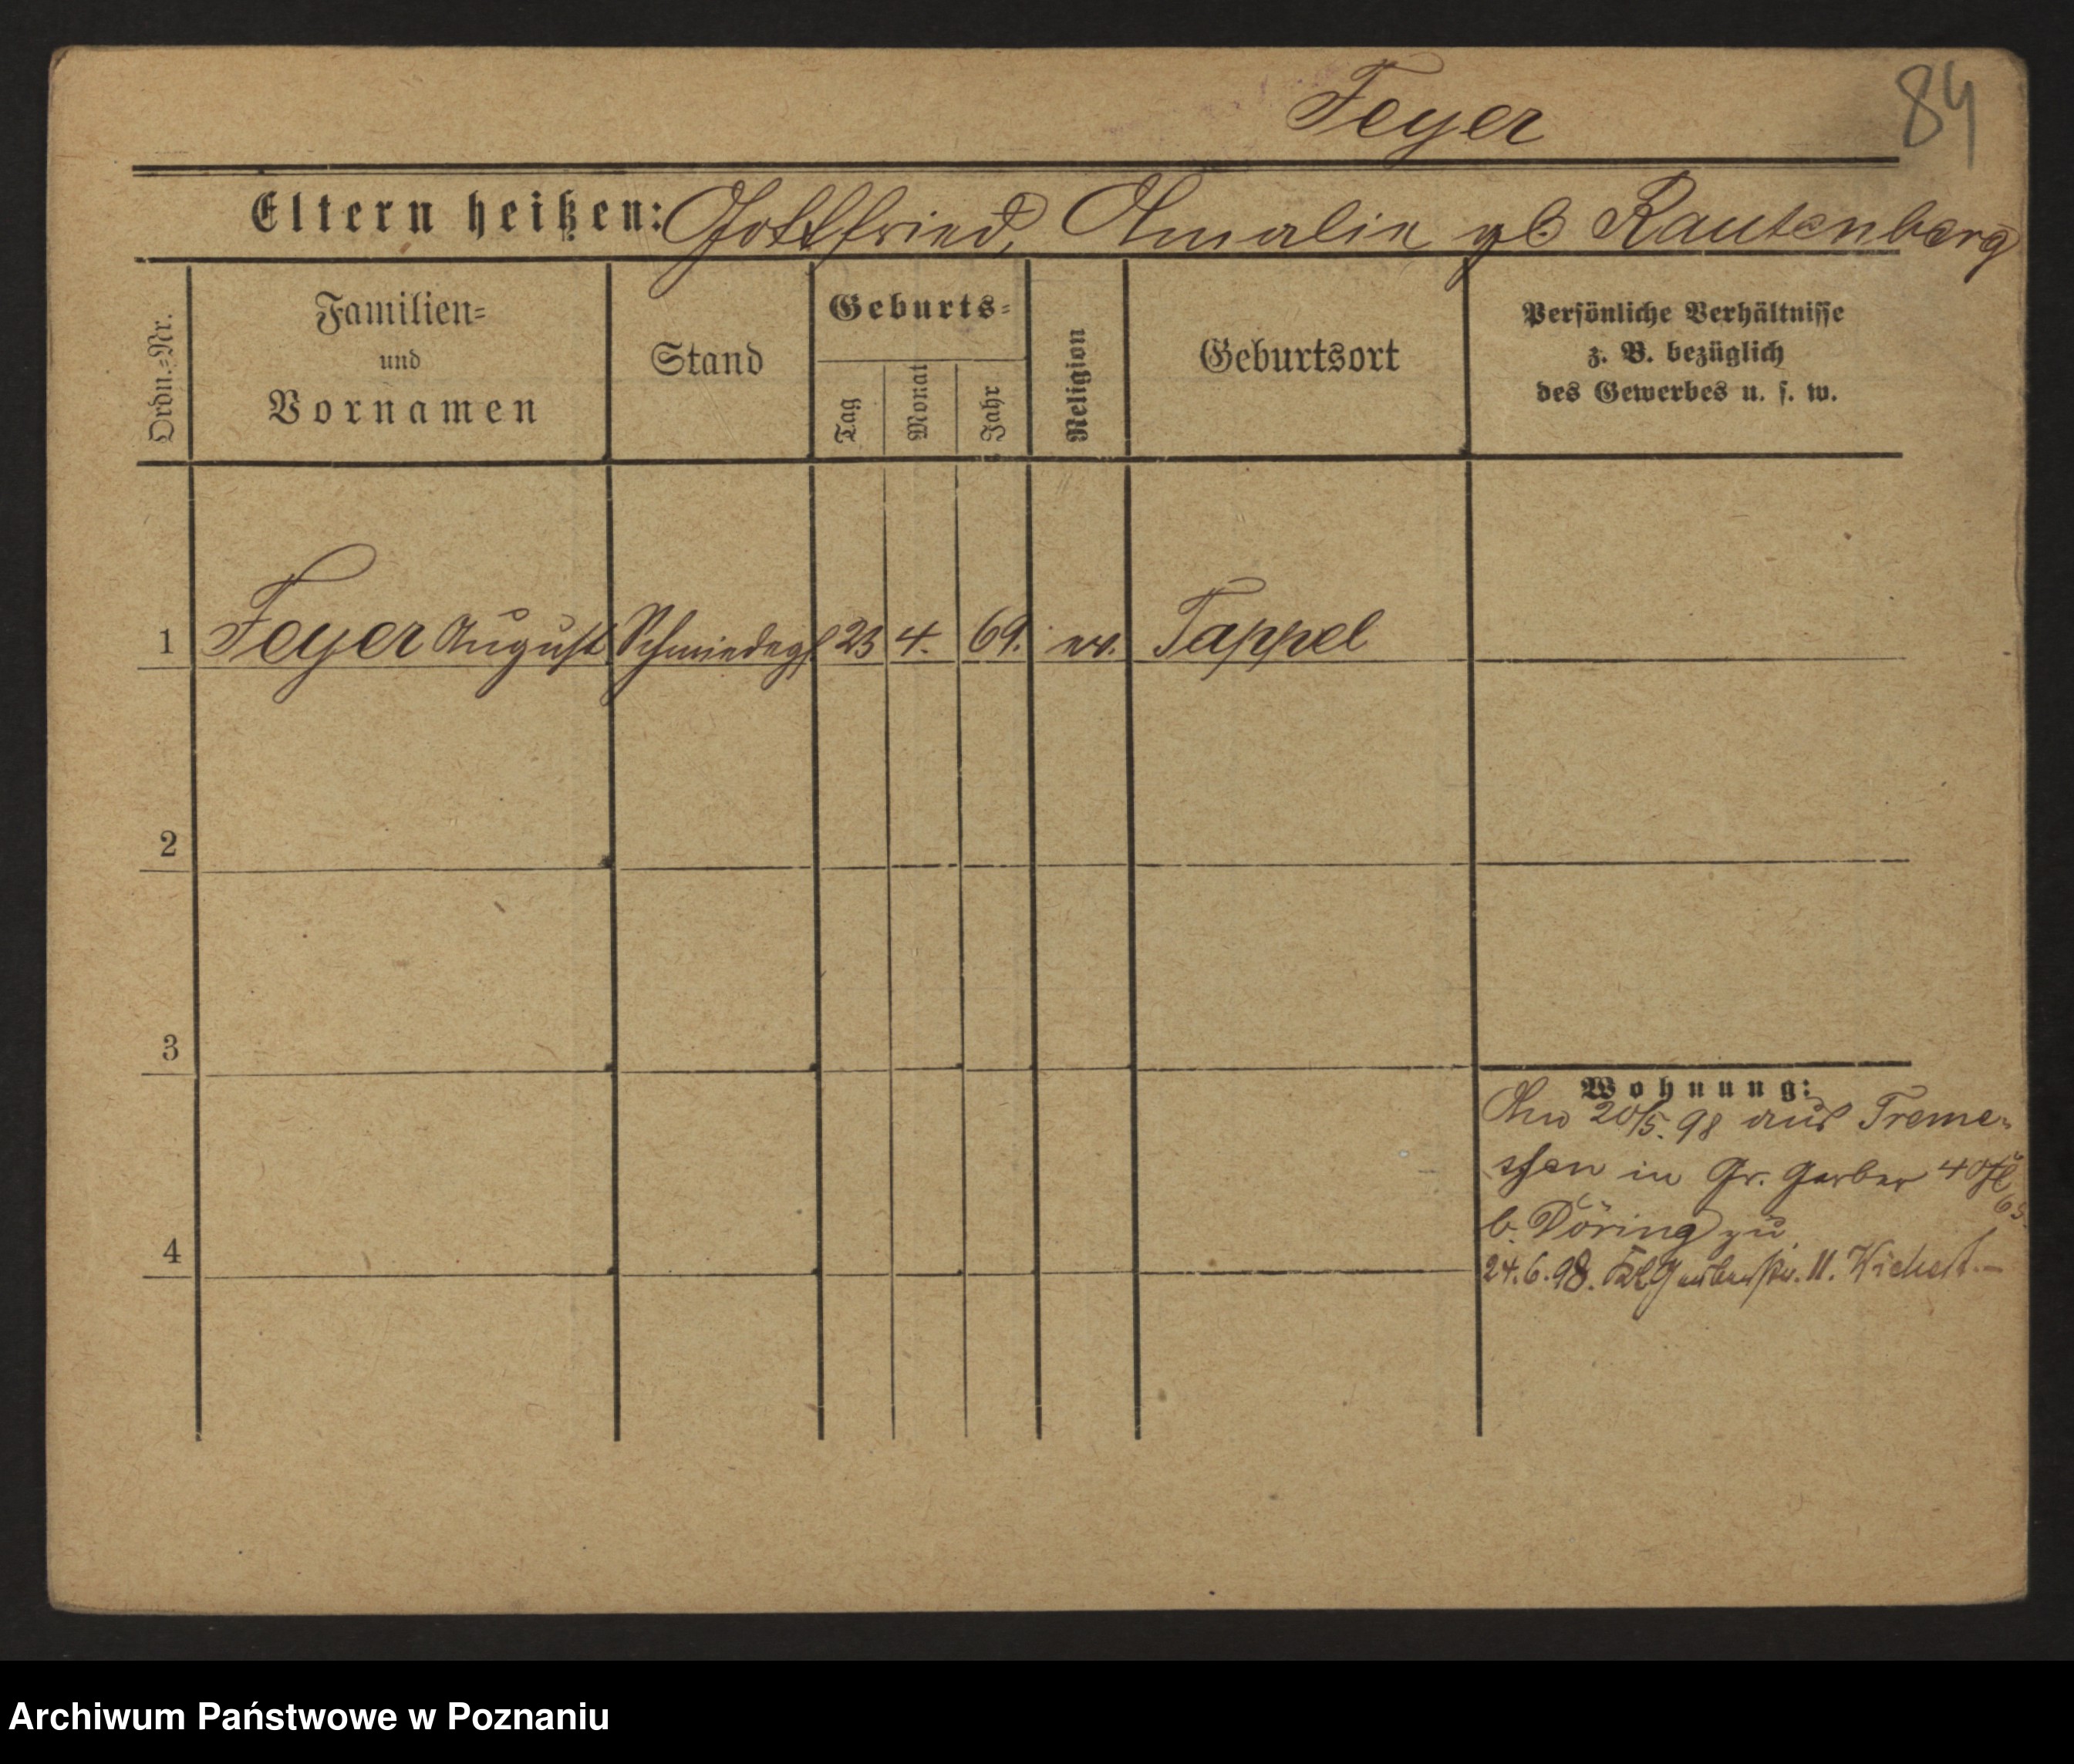 Feyer
84
Eltern heißen: Gottfried, Amalie gb Rautenberg
Ordn.=Nr.
Familien=
und
Vornamen
Stand
Geburts=
Tag
Monat
Jahr
Religion
Geburtsort
Persönliche Verhältnisse
z. B. bezüglich
des Gewerbes u. s. w.
1 Feyer August Schmiedegs 23 4. 69. ev. Tappel
2
3
4
Wohnung:
20/5. 98 aus Treme-
ssen in Gr. Gerber 40
b. Döring zu
24.6.98. Kl Gerberstr. 11.
Archiwum Państwowe w Poznaniu